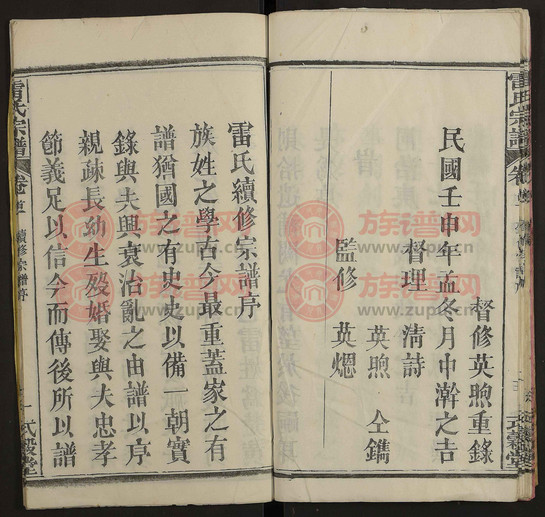 督修英煦重錄
民國壬申年孟冬月中澣之吉
督理 清詩
英煦 仝鐫
監修 英熜
雷氏續修宗譜序
族姓之學古今最重蓋家之有
譜猶國之有史史以備一朝實
錄與夫興衰治亂之由譜以序
親疎長幼生歿婚娶與夫忠孝
節義足以信今而傳後所以譜
雷氏宗譜 卷首 續修宗譜序
雷氏宗譜
族谱网
www.zupu.cn
族谱网
www.zupu.cn
族谱网
www.zupu.cn
族谱网
www.zupu.cn